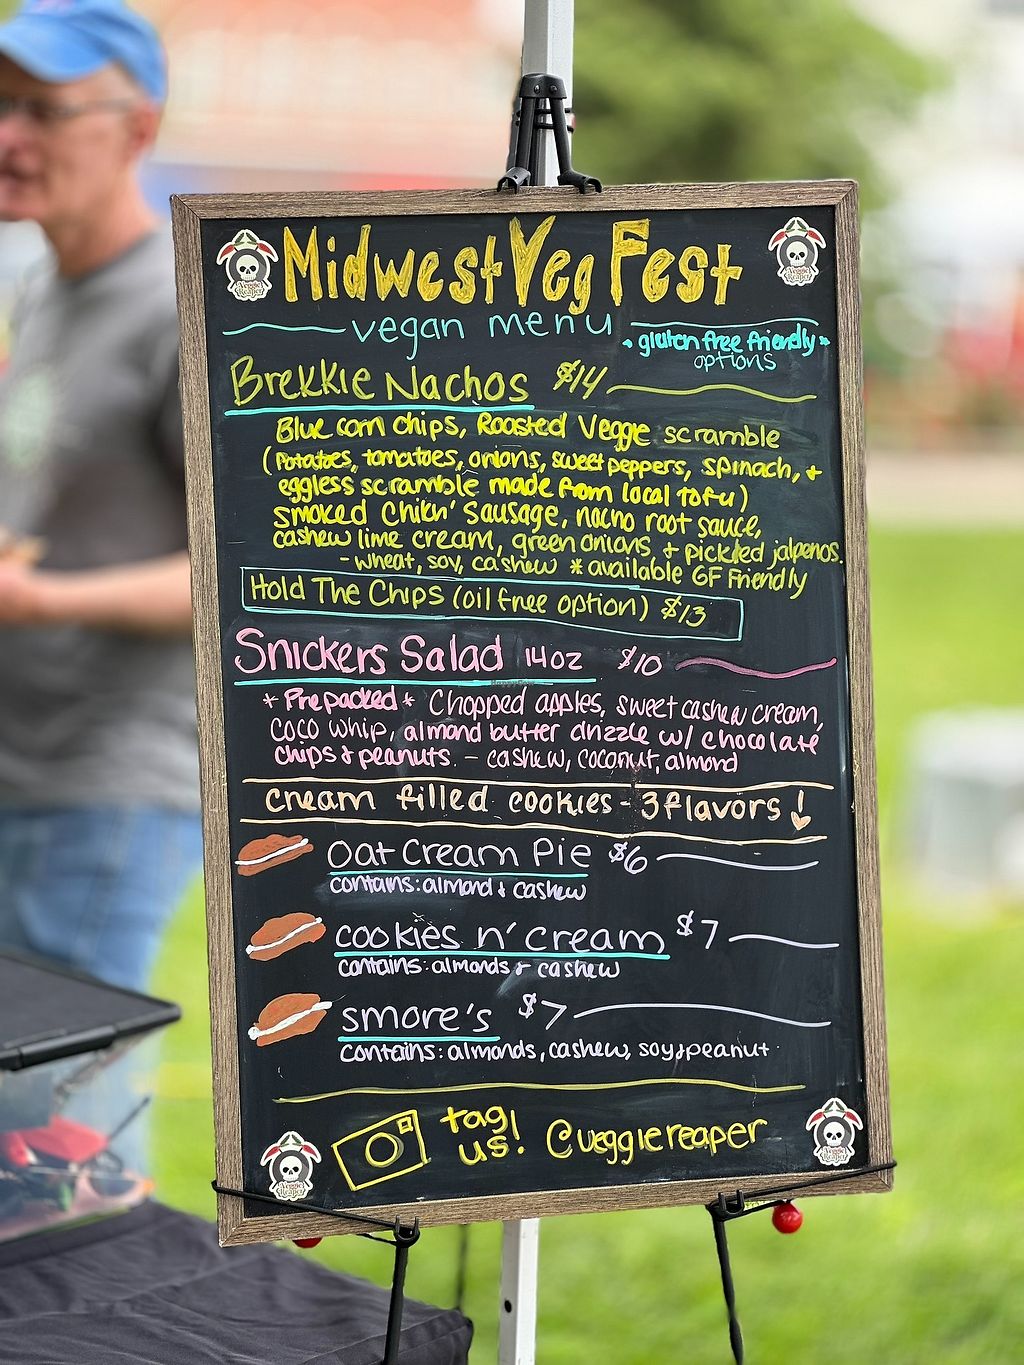 Midwest Veg Fest
vegan menu
• gluten free friendly •
options
Brekkie Nachos $14
Blue corn chips, Roasted Veggie scramble
(Potatoes, tomatoes, onions, sweet peppers, spinach, +
eggless scramble made from local tofu)
smoked chikn' sausage, nacho root sauce,
cashew lime cream, green onions, + pickled jalpenos.
- wheat, soy, cashew * available GF Friendly
Hold The Chips (oil free option) $13
Snickers Salad 14oz $10
* Prepacked * Chopped apples, sweet cashew cream,
coco whip, almond butter drizzle w/ chocolate
chips & peanuts. - cashew, coconut, almond
cream filled cookies - 3 flavors!
Oat Cream Pie $6
contains: almond & cashew
cookies n' cream $7
contains: almonds & cashew
smore's $7
contains: almonds, cashew, soy & peanut
tag
us! @veggiereaper
Veggie
Reaper
Veggie
Reaper
Veggie
Reaper
Veggie
Reaper